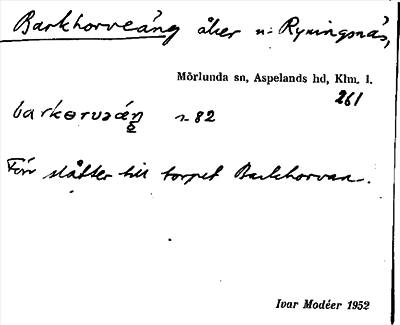 Barkhorveäng åker n: Ryningsnäs,
Mörlunda sn, Aspelands hd, Klm. l.
261
barkərvəäŋ 82
Förr slåtter till torpet Barkhorvan.
Ivar Modéer 1952